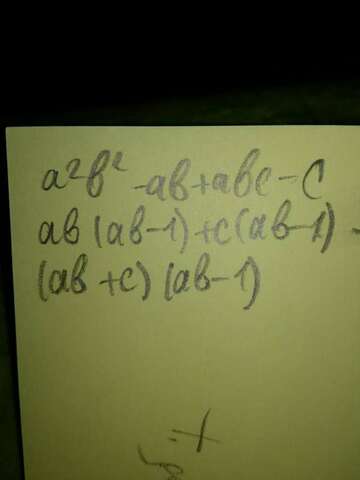 a²b² -ab+abc-c
ab (ab-1)+c(ab-1) -
(ab +c) (ab-1)